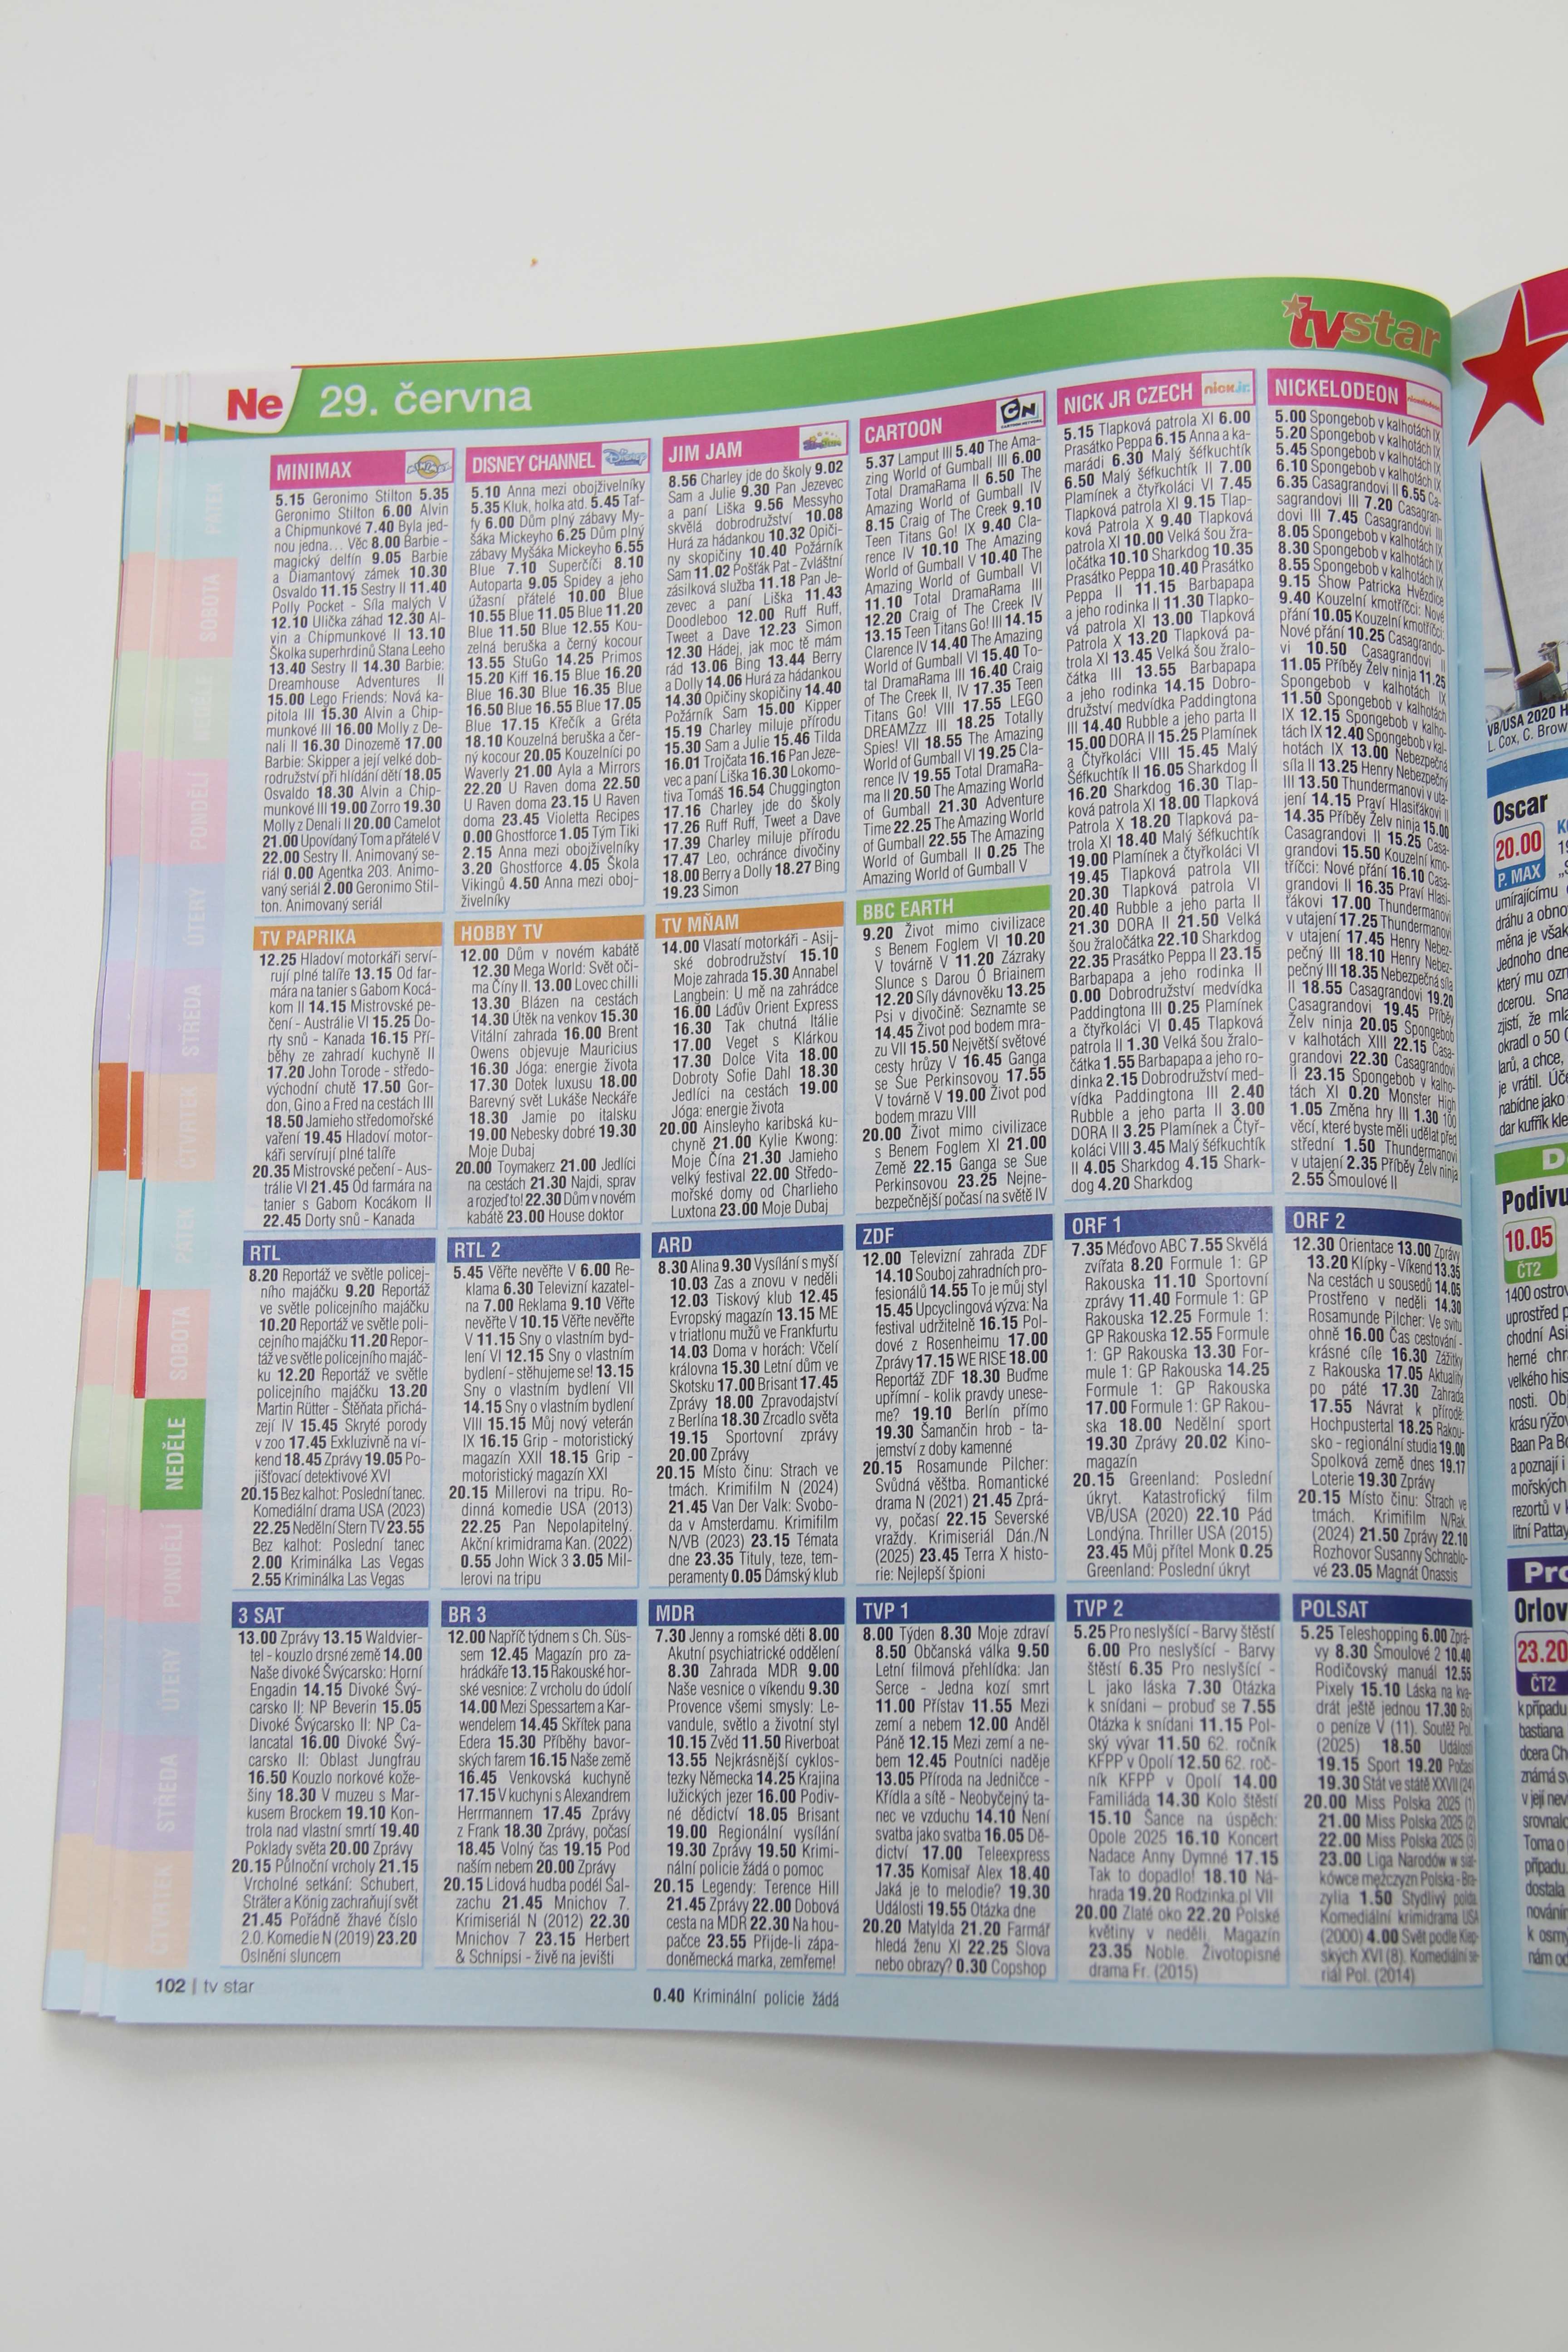 tvstar
Ne 29. června
MINIMAX
5.15 Geronimo Stilton 5.35
Geronimo Stilton 6.00 Alvin
a Chipmunkové 7.40 Byla jed-
nou jedna... Věc 8.00 Barbie -
magický delfín 9.05 Barbie
a Diamantový zámek 10.30
Osvaldo 11.15 Sestry II 11.40
Polly Pocket - Síla malých V
12.10 Ulička záhad 12.30 Al-
vin a Chipmunkové II 13.10
Školka superhrdinů Stana Leeho
13.40 Sestry II 14.30 Barbie:
Dreamhouse Adventures II
15.00 Lego Friends: Nová ka-
pitola III 15.30 Alvin a Chip-
munkové III 16.00 Molly z De-
nali II 16.30 Dinozemě 17.00
Barbie: Skipper a její velké dob-
rodružství při hlídání dětí 18.05
Osvaldo 18.30 Alvin a Chip-
munkové III 19.00 Zorro 19.30
Molly z Denali II 20.00 Camelot
21.00 Upovídaný Tom a přátelé V
22.00 Sestry II. Animovaný se-
riál 0.00 Agentka 203. Animo-
vaný seriál 2.00 Geronimo Stil-
ton. Animovaný seriál
DISNEY CHANNEL
5.10 Anna mezi obojživelníky
5.35 Kluk, holka atd. 5.45 Taf-
fy 6.00 Dům plný zábavy My-
šáka Mickeyho 6.25 Dům plný
zábavy Myšáka Mickeyho 6.55
Blue 7.10 Superčíči 8.10
Autoparta 9.05 Spidey a jeho
úžasní přátelé 10.00 Blue
10.55 Blue 11.05 Blue 11.20
Blue 11.50 Blue 12.55 Kou-
zelná beruška a černý kocour
13.55 StuGo 14.25 Primos
15.20 Kiff 16.15 Blue 16.20
Blue 16.30 Blue 16.35 Blue
16.50 Blue 16.55 Blue 17.05
Blue 17.15 Křečík a Gréta
18.10 Kouzelná beruška a čer-
ný kocour 20.05 Kouzelníci po
Waverly 21.00 Ayla a Mirrors
22.20 U Raven doma 22.50
U Raven doma 23.15 U Raven
doma 23.45 Violetta Recipes
0.00 Ghostforce 1.05 Tým Tiki
2.15 Anna mezi obojživelníky
3.20 Ghostforce 4.05 Škola
Vikingů 4.50 Anna mezi oboj-
živelníky
JIM JAM
8.56 Charley jde do školy 9.02
Sam a Julie 9.30 Pan Jezevec
a paní Liška 9.56 Messyho
skvělá dobrodružství 10.08
Hurá za hádankou 10.32 Opiči-
ny skopičiny 10.40 Požárník
Sam 11.02 Pošťák Pat - Zvláštní
zásilková služba 11.18 Pan Je-
zevec a paní Liška 11.43
Doodleboo 12.00 Ruff Ruff,
Tweet a Dave 12.23 Simon
12.30 Hádej, jak moc tě mám
rád 13.06 Bing 13.44 Berry
a Dolly 14.06 Hurá za hádankou
14.30 Opičiny skopičiny 14.40
Požárník Sam 15.00 Kipper
15.19 Charley miluje přírodu
15.30 Sam a Julie 15.46 Tilda
16.01 Trojčata 16.16 Pan Jeze-
vec a paní Liška 16.30 Lokomo-
tiva Tomáš 16.54 Chuggington
17.16 Charley jde do školy
17.26 Ruff Ruff, Tweet a Dave
17.39 Charley miluje přírodu
17.47 Leo, ochránce divočiny
18.00 Berry a Dolly 18.27 Bing
19.23 Simon
CARTOON
CN
5.37 Lamput III 5.40 The Ama-
zing World of Gumball III 6.00
Total DramaRama II 6.50 The
Amazing World of Gumball IV
8.15 Craig of The Creek 9.10
Teen Titans Go! IX 9.40 Cla-
rence IV 10.10 The Amazing
World of Gumball V 10.40 The
Amazing World of Gumball VI
11.10 Total DramaRama III
12.20 Craig of The Creek IV
13.15 Teen Titans Go! III 14.15
Clarence IV 14.40 The Amazing
World of Gumball VI 15.40 To-
tal DramaRama III 16.40 Craig
of The Creek II, IV 17.35 Teen
Titans Go! VIII 17.55 LEGO
DREAMZzz III 18.25 Totally
Spies! VII 18.55 The Amazing
World of Gumball VI 19.25 Cla-
rence IV 19.55 Total DramaRa-
ma II 20.50 The Amazing World
of Gumball 21.30 Adventure
Time 22.25 The Amazing World
of Gumball 22.55 The Amazing
World of Gumball II 0.25 The
Amazing World of Gumball V
NICK JR CZECH
nick jr.
5.15 Tlapková patrola XI 6.00
Prasátko Peppa 6.15 Anna a ka-
marádi 6.30 Malý šéfkuchtík
6.50 Malý šéfkuchtík II 7.00
Plamínek a čtyřkoláci VI 7.45
Tlapková patrola XI 9.15 Tlap-
ková Patrola X 9.40 Tlapková
patrola XI 10.00 Velká šou žra-
ločátka 10.10 Sharkdog 10.35
Prasátko Peppa 10.40 Prasátko
Peppa II 11.15 Barbapapa
a jeho rodinka II 11.30 Tlapko-
vá patrola XI 13.00 Tlapková
Patrola X 13.20 Tlapková pa-
trola XI 13.45 Velká šou žralo-
čátka III 13.55 Barbapapa
a jeho rodinka 14.15 Dobro-
družství medvídka Paddingtona
III 14.40 Rubble a jeho parta II
15.00 DORA II 15.25 Plamínek
a Čtyřkoláci VIII 15.45 Malý
Šéfkuchtík II 16.05 Sharkdog II
16.20 Sharkdog 16.30 Tlap-
ková patrola XI 18.00 Tlapková
Patrola X 18.20 Tlapková pa-
trola XI 18.40 Malý šéfkuchtík
19.00 Plamínek a čtyřkoláci VI
19.45 Tlapková patrola VII
20.30 Tlapková patrola VI
20.40 Rubble a jeho parta II
21.30 DORA II 21.50 Velká
šou žraločátka 22.10 Sharkdog
22.35 Prasátko Peppa II 23.15
Barbapapa a jeho rodinka II
0.00 Dobrodružství medvídka
Paddingtona III 0.25 Plamínek
a čtyřkoláci VI 0.45 Tlapková
patrola II 1.30 Velká šou žralo-
čátka 1.55 Barbapapa a jeho ro-
dinka 2.15 Dobrodružství med-
vídka Paddingtona III 2.40
Rubble a jeho parta II 3.00
DORA II 3.25 Plamínek a Čtyř-
koláci VIII 3.45 Malý Šéfkuchtík
II 4.05 Sharkdog 4.15 Shark-
dog 4.20 Sharkdog
NICKELODEON
5.00 Spongebob v kalhotách IX
5.20 Spongebob v kalhotách IX
5.45 Spongebob v kalhotách IX
6.10 Spongebob v kalhotách IX
6.35 Casagrandovi II 6.55 Ca-
sagrandovi III 7.20 Casagran-
dovi III 7.45 Casagrandovi III
8.05 Spongebob v kalhotách IX
8.30 Spongebob v kalhotách IX
8.55 Spongebob v kalhotách IX
9.15 Show Patricka Hvězdice
9.40 Kouzelní kmotříčci: Nové
přání 10.05 Kouzelní kmotříčci:
Nové přání 10.25 Casagrando-
vi 10.50 Casagrandovi II
11.05 Příběhy Želv ninja 11.25
Spongebob v kalhotách IX
11.50 Spongebob v kalhotách
IX 12.15 Spongebob v kalho-
tách IX 12.40 Spongebob v kal-
hotách IX 13.00 Nebezpečná
síla II 13.25 Henry Nebezpečný
III 13.50 Thundermanovi v uta-
jení 14.15 Praví Hlasiťákovi II
14.35 Příběhy Želv ninja 15.00
Casagrandovi II 15.25 Casa-
grandovi 15.50 Kouzelní kmo-
tříčci: Nové přání 16.10 Casa-
grandovi II 16.35 Praví Hlasi-
ťákovi 17.00 Thundermanovi
v utajení 17.25 Thundermanovi
v utajení 17.45 Henry Nebez-
pečný III 18.10 Henry Nebez-
pečný III 18.35 Nebezpečná síla
II 18.55 Casagrandovi 19.20
Casagrandovi 19.45 Příběhy
Želv ninja 20.05 Spongebob
v kalhotách XIII 22.15 Casa-
grandovi 22.30 Casagrandovi
II 23.15 Spongebob v kalho-
tách XI 0.20 Monster High
1.05 Změna hry III 1.30 100
věcí, které byste měli udělat před
střední 1.50 Thundermanovi
v utajení 2.35 Příběhy Želv ninja
2.55 Šmoulové II
TV PAPRIKA
12.25 Hladoví motorkáři serví-
rují plné talíře 13.15 Od far-
mára na tanier s Gabom Kocá-
kom II 14.15 Mistrovské pe-
čení - Austrálie VI 15.25 Do-
rty snů - Kanada 16.15 Pří-
běhy ze zahradí kuchyně II
17.20 John Torode - středo-
východní chutě 17.50 Gor-
don, Gino a Fred na cestách III
18.50 Jamieho středomořské
vaření 19.45 Hladoví motor-
káři servírují plné talíře
20.35 Mistrovské pečení - Aus-
trálie VI 21.45 Od farmára na
tanier s Gabom Kocákom II
22.45 Dorty snů - Kanada
HOBBY TV
12.00 Dům v novém kabátě
12.30 Mega World: Svět oči-
ma Číny II. 13.00 Lovec chilli
13.30 Blázen na cestách
14.30 Útěk na venkov 15.30
Vitální zahrada 16.00 Brent
Owens objevuje Mauricius
16.30 Jóga: energie života
17.30 Dotek luxusu 18.00
Barevný svět Lukáše Neckáře
18.30 Jamie po italsku
19.00 Nebesky dobré 19.30
Moje Dubaj
20.00 Toymakerz 21.00 Jedlíci
na cestách 21.30 Najdi, sprav
a rozjeď to! 22.30 Dům v novém
kabátě 23.00 House doktor
TV MŇAM
14.00 Vlasatí motorkáři - Asij-
ské dobrodružství 15.10
Moje zahrada 15.30 Annabel
Langbein: U mě na zahrádce
16.00 Láďův Orient Express
16.30 Tak chutná Itálie
17.00 Veget s Klárkou
17.30 Dolce Vita 18.00
Dobroty Sofie Dahl 18.30
Jedlíci na cestách 19.00
Jóga: energie života
20.00 Ainsleyho karibská ku-
chyně 21.00 Kylie Kwong:
Moje Čína 21.30 Jamieho
velký festival 22.00 Středo-
mořské domy od Charlieho
Luxtona 23.00 Moje Dubaj
BBC EARTH
9.20 Život mimo civilizace
s Benem Foglem VI 10.20
V továrně V 11.20 Zázraky
Slunce s Darou Ó Briainem
12.20 Síly dávnověku 13.25
Psi v divočině: Seznamte se
14.45 Život pod bodem mra-
zu VII 15.50 Největší světové
cesty hrůzy V 16.45 Ganga
se Sue Perkinsovou 17.55
V továrně V 19.00 Život pod
bodem mrazu VIII
20.00 Život mimo civilizace
s Benem Foglem XI 21.00
Země 22.15 Ganga se Sue
Perkinsovou 23.25 Nejne-
bezpečnější počasí na světě IV
RTL
8.20 Reportáž ve světle policej-
ního majáčku 9.20 Reportáž
ve světle policejního majáčku
10.20 Reportáž ve světle poli-
cejního majáčku 11.20 Repor-
táž ve světle policejního majáč-
ku 12.20 Reportáž ve světle
policejního majáčku 13.20
Martin Rütter - Štěňata přichá-
zejí IV 15.45 Skryté porody
v zoo 17.45 Exkluzivně na ví-
kend 18.45 Zprávy 19.05 Po-
jišťovací detektivové XVI
20.15 Bez kalhot: Poslední tanec.
Komediální drama USA (2023)
22.25 Nedělní Stern TV 23.55
Bez kalhot: Poslední tanec
2.00 Kriminálka Las Vegas
2.55 Kriminálka Las Vegas
RTL 2
5.45 Věřte nevěřte V 6.00 Re-
klama 6.30 Televizní kazatel-
na 7.00 Reklama 9.10 Věřte
nevěřte V 10.15 Věřte nevěřte
V 11.15 Sny o vlastním byd-
lení VI 12.15 Sny o vlastním
bydlení - stěhujeme se! 13.15
Sny o vlastním bydlení VII
14.15 Sny o vlastním bydlení
VIII 15.15 Můj nový veterán
IX 16.15 Grip - motoristický
magazín XXII 18.15 Grip -
motoristický magazín XXI
20.15 Millerovi na tripu. Ro-
dinná komedie USA (2013)
22.25 Pan Nepolapitelný.
Akční krimidrama Kan. (2022)
0.55 John Wick 3 3.05 Mil-
lerovi na tripu
ARD
8.30 Alina 9.30 Vysílání s myší
10.03 Zas a znovu v neděli
12.03 Tiskový klub 12.45
Evropský magazín 13.15 ME
v triatlonu mužů ve Frankfurtu
14.03 Doma v horách: Včelí
královna 15.30 Letní dům ve
Skotsku 17.00 Brisant 17.45
Zprávy 18.00 Zpravodajství
z Berlína 18.30 Zrcadlo světa
19.15 Sportovní zprávy
20.00 Zprávy
20.15 Místo činu: Strach ve
tmách. Krimifilm N (2024)
21.45 Van Der Valk: Svobo-
da v Amsterdamu. Krimifilm
N/VB (2023) 23.15 Témata
dne 23.35 Tituly, teze, tem-
peramenty 0.05 Dámský klub
ZDF
12.00 Televizní zahrada ZDF
14.10 Souboj zahradních pro-
fesionálů 14.55 To je můj styl
15.45 Upcyclingová výzva: Na
festival udržitelně 16.15 Pol-
dové z Rosenheimu 17.00
Zprávy 17.15 WE RISE 18.00
Reportáž ZDF 18.30 Buďme
upřímní - kolik pravdy unese-
me? 19.10 Berlín přímo
19.30 Šamančin hrob - ta-
jemství z doby kamenné
20.15 Rosamunde Pilcher:
Svůdná věštba. Romantické
drama N (2021) 21.45 Zprá-
vy, počasí 22.15 Severské
vraždy. Krimiseriál Dán./N
(2025) 23.45 Terra X histo-
rie: Nejlepší špioni
ORF 1
7.35 Méďovo ABC 7.55 Skvělá
zvířata 8.20 Formule 1: GP
Rakouska 11.10 Sportovní
zprávy 11.40 Formule 1: GP
Rakouska 12.25 Formule 1:
GP Rakouska 12.55 Formule
1: GP Rakouska 13.30 For-
mule 1: GP Rakouska 14.25
Formule 1: GP Rakouska
17.00 Formule 1: GP Rakou-
ska 18.00 Nedělní sport
19.30 Zprávy 20.02 Kino-
magazín
20.15 Greenland: Poslední
úkryt. Katastrofický film
VB/USA (2020) 22.10 Pád
Londýna. Thriller USA (2015)
23.45 Můj přítel Monk 0.25
Greenland: Poslední úkryt
ORF 2
12.30 Orientace 13.00 Zprávy
13.20 Klípky - Víkend 13.35
Na cestách u sousedů 14.05
Prostřeno v neděli 14.30
Rosamunde Pilcher: Ve svitu
ohně 16.00 Čas cestování -
krásné cíle 16.30 Zážitky
z Rakouska 17.05 Aktuality
po páté 17.30 Zahrada
17.55 Návrat k přírodě:
Hochpustertal 18.25 Rakou-
sko - regionální studia 19.00
Spolková země dnes 19.17
Loterie 19.30 Zprávy
20.15 Místo činu: Strach ve
tmách. Krimifilm N/Rak.
(2024) 21.50 Zprávy 22.10
Rozhovor Susanny Schnablo-
vé 23.05 Magnát Onassis
3 SAT
13.00 Zprávy 13.15 Waldvier-
tel - kouzlo drsné země 14.00
Naše divoké Švýcarsko: Horní
Engadin 14.15 Divoké Švý-
carsko II: NP Beverin 15.05
Divoké Švýcarsko II: NP Ca-
lancatal 16.00 Divoké Švý-
carsko II: Oblast Jungfrau
16.50 Kouzlo norkové kože-
šiny 18.30 V muzeu s Mar-
kusem Brockem 19.10 Kon-
trola nad vlastní smrtí 19.40
Poklady světa 20.00 Zprávy
20.15 Půlnoční vrcholy 21.15
Vrcholné setkání: Schubert,
Sträter a König zachraňují svět
21.45 Pořádně žhavé číslo
2.0. Komedie N (2019) 23.20
Oslněni sluncem
BR 3
12.00 Napříč týdnem s Ch. Süs-
sem 12.45 Magazín pro za-
hrádkáře 13.15 Rakouské hor-
ské vesnice: Z vrcholu do údolí
14.00 Mezi Spessartem a Kar-
wendelem 14.45 Skřítek pana
Edera 15.30 Příběhy bavor-
ských farem 16.15 Naše země
16.45 Venkovská kuchyně
17.15 V kuchyni s Alexandrem
Herrmannem 17.45 Zprávy
z Frank 18.30 Zprávy, počasí
18.45 Volný čas 19.15 Pod
naším nebem 20.00 Zprávy
20.15 Lidová hudba podél Sal-
zachu 21.45 Mnichov 7.
Krimiseriál N (2012) 22.30
Mnichov 7 23.15 Herbert
& Schnipsi - živě na jevišti
MDR
7.30 Jenny a romské děti 8.00
Akutní psychiatrické oddělení
8.30 Zahrada MDR 9.00
Naše vesnice o víkendu 9.30
Provence všemi smysly: Le-
vandule, světlo a životní styl
10.15 Zvěd 11.50 Riverboat
13.55 Nejkrásnější cyklos-
tezky Německa 14.25 Krajina
lužických jezer 16.00 Podiv-
né dědictví 18.05 Brisant
19.00 Regionální vysílání
19.30 Zprávy 19.50 Krimi-
nální policie žádá o pomoc
20.15 Legendy: Terence Hill
21.45 Zprávy 22.00 Dobová
cesta na MDR 22.30 Na hou-
pačce 23.55 Přijde-li zápa-
doněmecká marka, zemřeme!
0.40 Kriminální policie žádá
TVP 1
8.00 Týden 8.30 Moje zdraví
8.50 Občanská válka 9.50
Letní filmová přehlídka: Jan
Serce - Jedna kozí smrt
11.00 Přístav 11.55 Mezi
zemí a nebem 12.00 Anděl
Páně 12.15 Mezi zemí a ne-
bem 12.45 Poutníci naděje
13.05 Příroda na Jedničce -
Křídla a sítě - Neobyčejný ta-
nec ve vzduchu 14.10 Není
svatba jako svatba 16.05 Dě-
dictví 17.00 Teleexpress
17.35 Komisař Alex 18.40
Jaká je to melodie? 19.30
Události 19.55 Otázka dne
20.20 Matylda 21.20 Farmář
hledá ženu XI 22.25 Slova
nebo obrazy? 0.30 Copshop
TVP 2
5.25 Pro neslyšící - Barvy štěstí
6.00 Pro neslyšící - Barvy
štěstí 6.35 Pro neslyšící -
L jako láska 7.30 Otázka
k snídani – probuď se 7.55
Otázka k snídani 11.15 Pol-
ský vývar 11.50 62. ročník
KFPP v Opolí 12.50 62. roč-
ník KFPP v Opolí 14.00
Familiáda 14.30 Kolo štěstí
15.10 Šance na úspěch:
Opole 2025 16.10 Koncert
Nadace Anny Dymné 17.15
Tak to dopadlo! 18.10 Ná-
hrada 19.20 Rodzinka.pl VII
20.00 Zlaté oko 22.20 Polské
květiny v neděli. Magazín
23.35 Noble. Životopisné
drama Fr. (2015)
POLSAT
5.25 Teleshopping 6.00 Zprá-
vy 8.30 Šmoulové 2 10.40
Rodičovský manuál 12.55
Pixely 15.10 Láska na kva-
drát ještě jednou 17.30 Boj
o peníze V (11). Soutěž Pol.
(2025) 18.50 Události
19.15 Sport 19.20 Počasí
19.30 Stát ve státě XXVII (24)
20.00 Miss Polska 2025 (1)
21.00 Miss Polska 2025 (2)
22.00 Miss Polska 2025 (3)
23.00 Liga Narodów w siat-
kówce mężczyzn Polska - Bra-
zylia 1.50 Stydlivý polda.
Komediální krimidrama USA
(2000) 4.00 Svět podle Kiep-
ských XVI (8). Komediální se-
riál Pol. (2014)
102 | tv star
PÁTEK
SOBOTA
NEDĚLE
PONDĚLÍ
ÚTERÝ
STŘEDA
ČTVRTEK
PÁTEK
SOBOTA
NEDĚLE
PONDĚLÍ
ÚTERÝ
STŘEDA
ČTVRTEK
VB/USA 2020
L. Cox, C. Brow
Oscar
20.00
P. MAX
umírajícímu
dráhu a obno
měna je však
Jednoho dne
který mu ozn
dcerou. Sna
zjistí, že mla
okradl o 50
larů, a chce,
je vrátil. Úče
nabídne jako
dar kufřík kle
Podivu
10.05
ČT2
1400 ostrov
uprostřed p
chodní Asi
herné chr
velkého his
nosti. Obj
krásu rýžov
Baan Pa Bo
a poznají i
mořských
rezortů v
litní Pattay
Pro
Orlov
23.20
ČT2
k případu
bastiana
dcera Ch
známá sv
v její nev
srovnalo
Toma o
případu.
dostala
nováním
k osmý
nám od